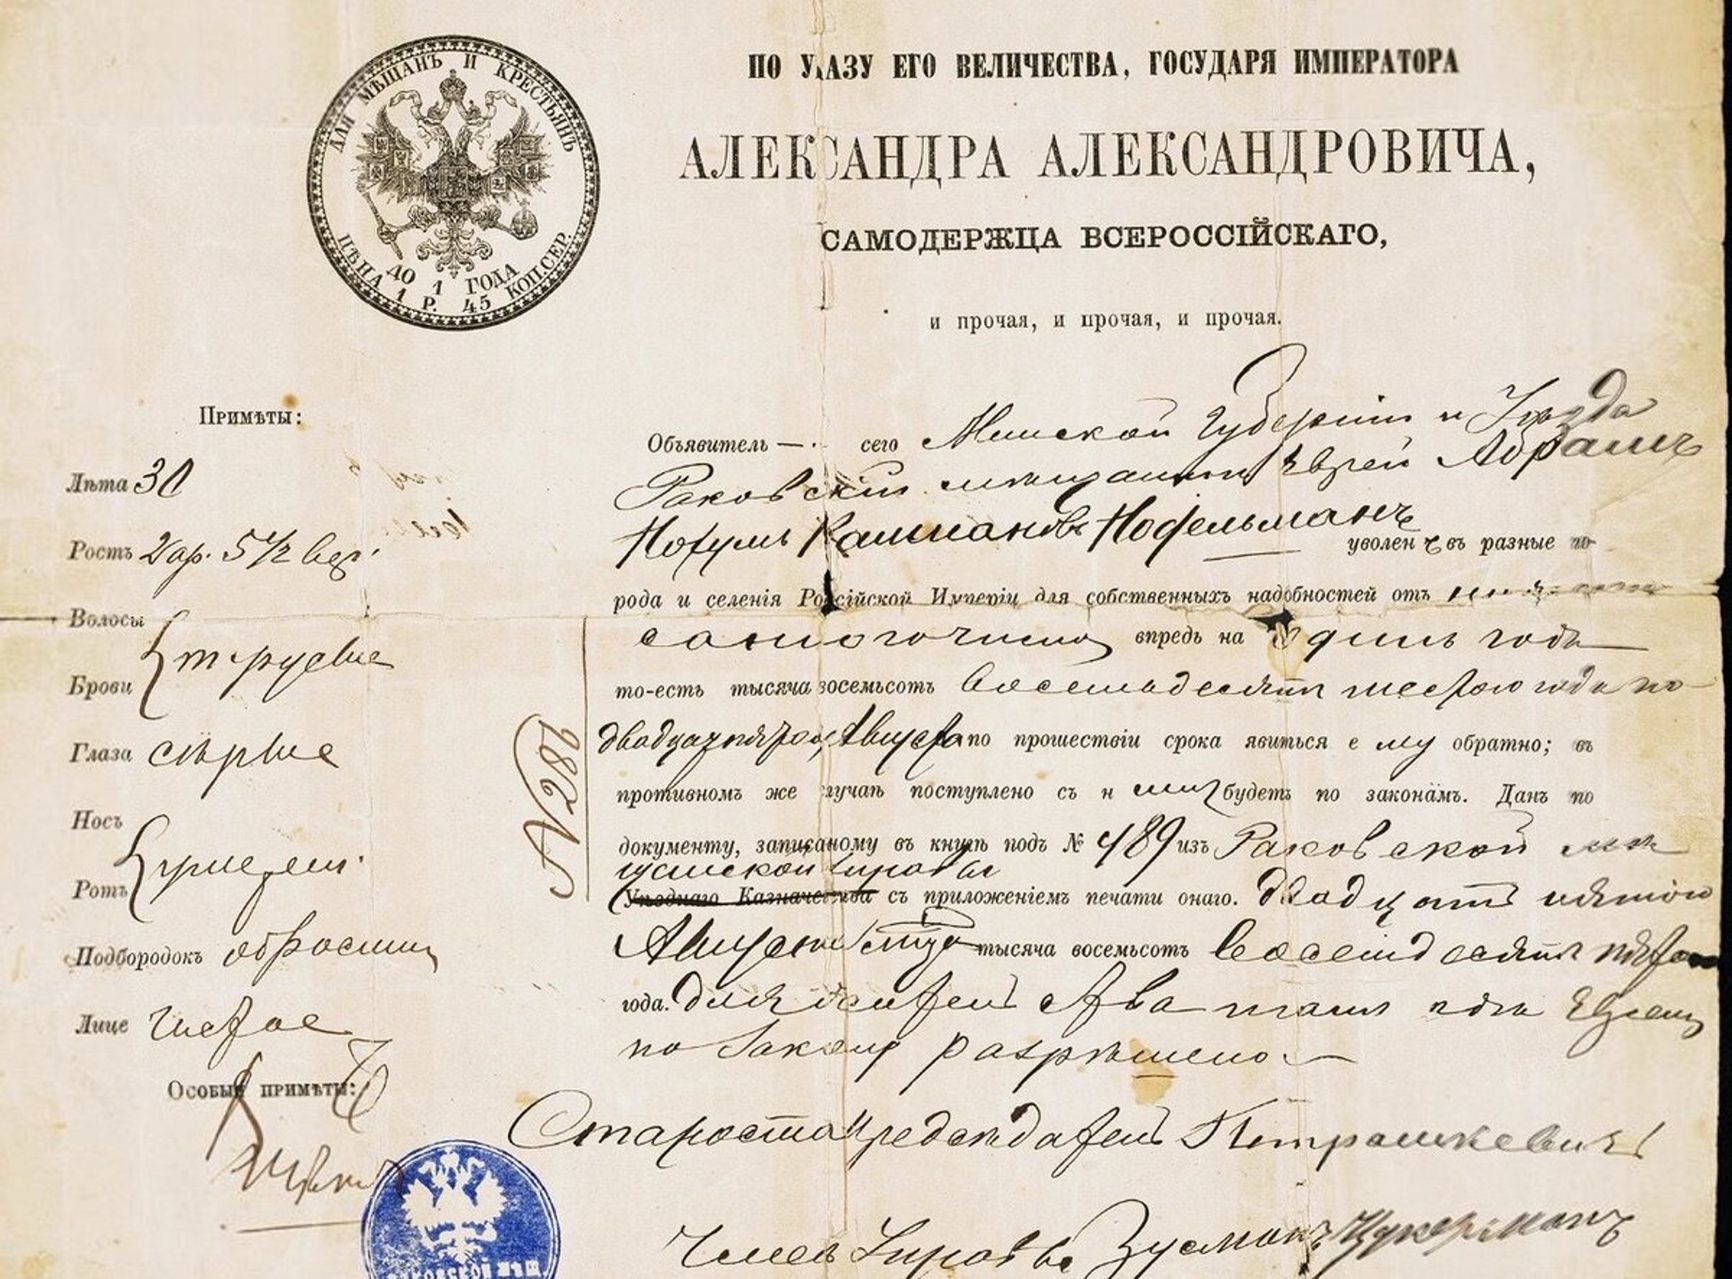 ДЛЯ МѢЩАНЪ И КРЕСТЬЯНЪ
ДО 1 ГОДА
ЦѢНА 1 Р. 45 КОП. СЕР.
ПО УКАЗУ ЕГО ВЕЛИЧЕСТВА, ГОСУДАРЯ ИМПЕРАТОРА
АЛЕКСАНДРА АЛЕКСАНДРОВИЧА,
САМОДЕРЖЦА ВСЕРОССІЙСКАГО,
и прочая, и прочая, и прочая.
Примѣты:
Лѣта 30
Ростъ 2 ар. 5 1/2 вер.
Волосы
Брови
Глаза сѣрые
Носъ
Ротъ
Подбородокъ
Лице чистое
Особыя примѣты:
N 286
Объявитель сего Минской Губерніи и Уѣзда
Раковскій мѣщанинъ Еврей Абрамъ
уволенъ въ разные го-
рода и селенія Россійской Имперіи для собственныхъ надобностей отъ
впредь на Одинъ годъ
то-есть тысяча восемьсотъ восемьдесятъ шестого года по
двадцатьпятое Августа по прошествіи срока явиться ему обратно; въ
противномъ же случаѣ поступлено съ нимъ будетъ по законамъ. Данъ по
документу, записаному въ книгѣ подъ № 489 изъ Раковской мѣ
щанской управы
Уѣзднаго Казначейства съ приложеніемъ печати онаго. Двадцать пятого
Августа тысяча восемьсотъ восемьдесятъ пятого
года.
по Закону разрѣшено
Староста Предсѣдатель Петрашкевичъ
Членъ Управы Зусманъ Цукерманъ